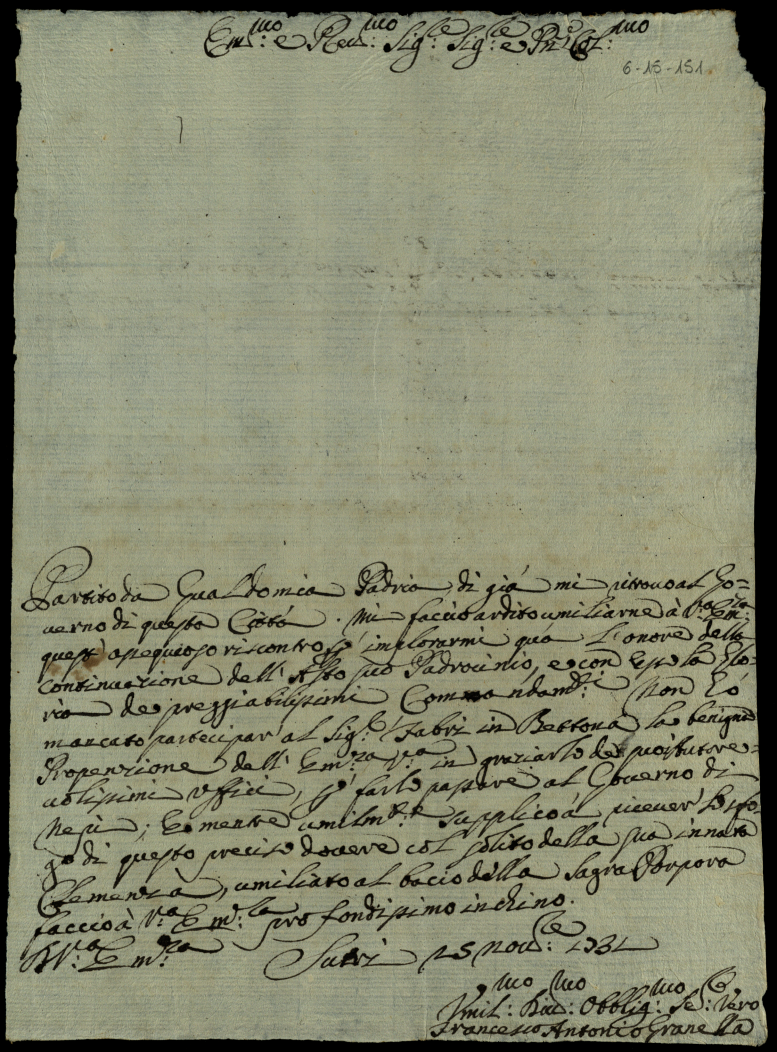 Em.mo e Rev.mo Sig.re Sig.re e Pne Col.mo
6-15-151
Partito da Gualdo mia Padria di già mi ritrovo al Go=
verno di questa Città. Mi faccio ardito umiliarne à V.a Em.za
quest' ossequioso riscontro, p implorarmi quà l'onore della
continuazione dell' Alto suo Padrocinio, e con Esso la Glo=
ria de preggiabilissimi Commandam.ti Non hò
mancato partecipar' al Sig.r Fabri in Bettona la benigna
Propenzione dell' Em.za V.a in graziarlo de suoi tutore=
volissimi uffici, p farlo passare al Governo di
; E mentre umilm.te supplico à ricever lo sfo=
go di questo preciso dovere col solito della sua innata
Clemenza, umiliato al bacio della Sagra Porpora
faccio à V.a Em.za profondissimo inchino.
D V.a Em.za Sutri 15 Nov.re 1731
Umil.mo Div.mo Obblig.mo Se.re Vero
Francesco Antonio Granella